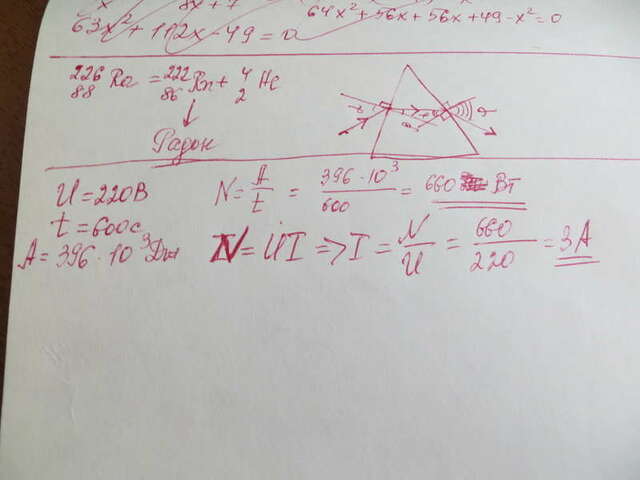 x 8x+7
63x²+112x-49=0
64x²+56x+56x+49-x²=0
²²⁶₈₈Ra = ²²²₈₆Rn + ⁴₂He
↓
Радон
U=220В
t=600c
A=396·10³Дж
N=A/t = 396·10³/600 = 660 Вт
N=UI => I = N/U = 660/220 = 3A